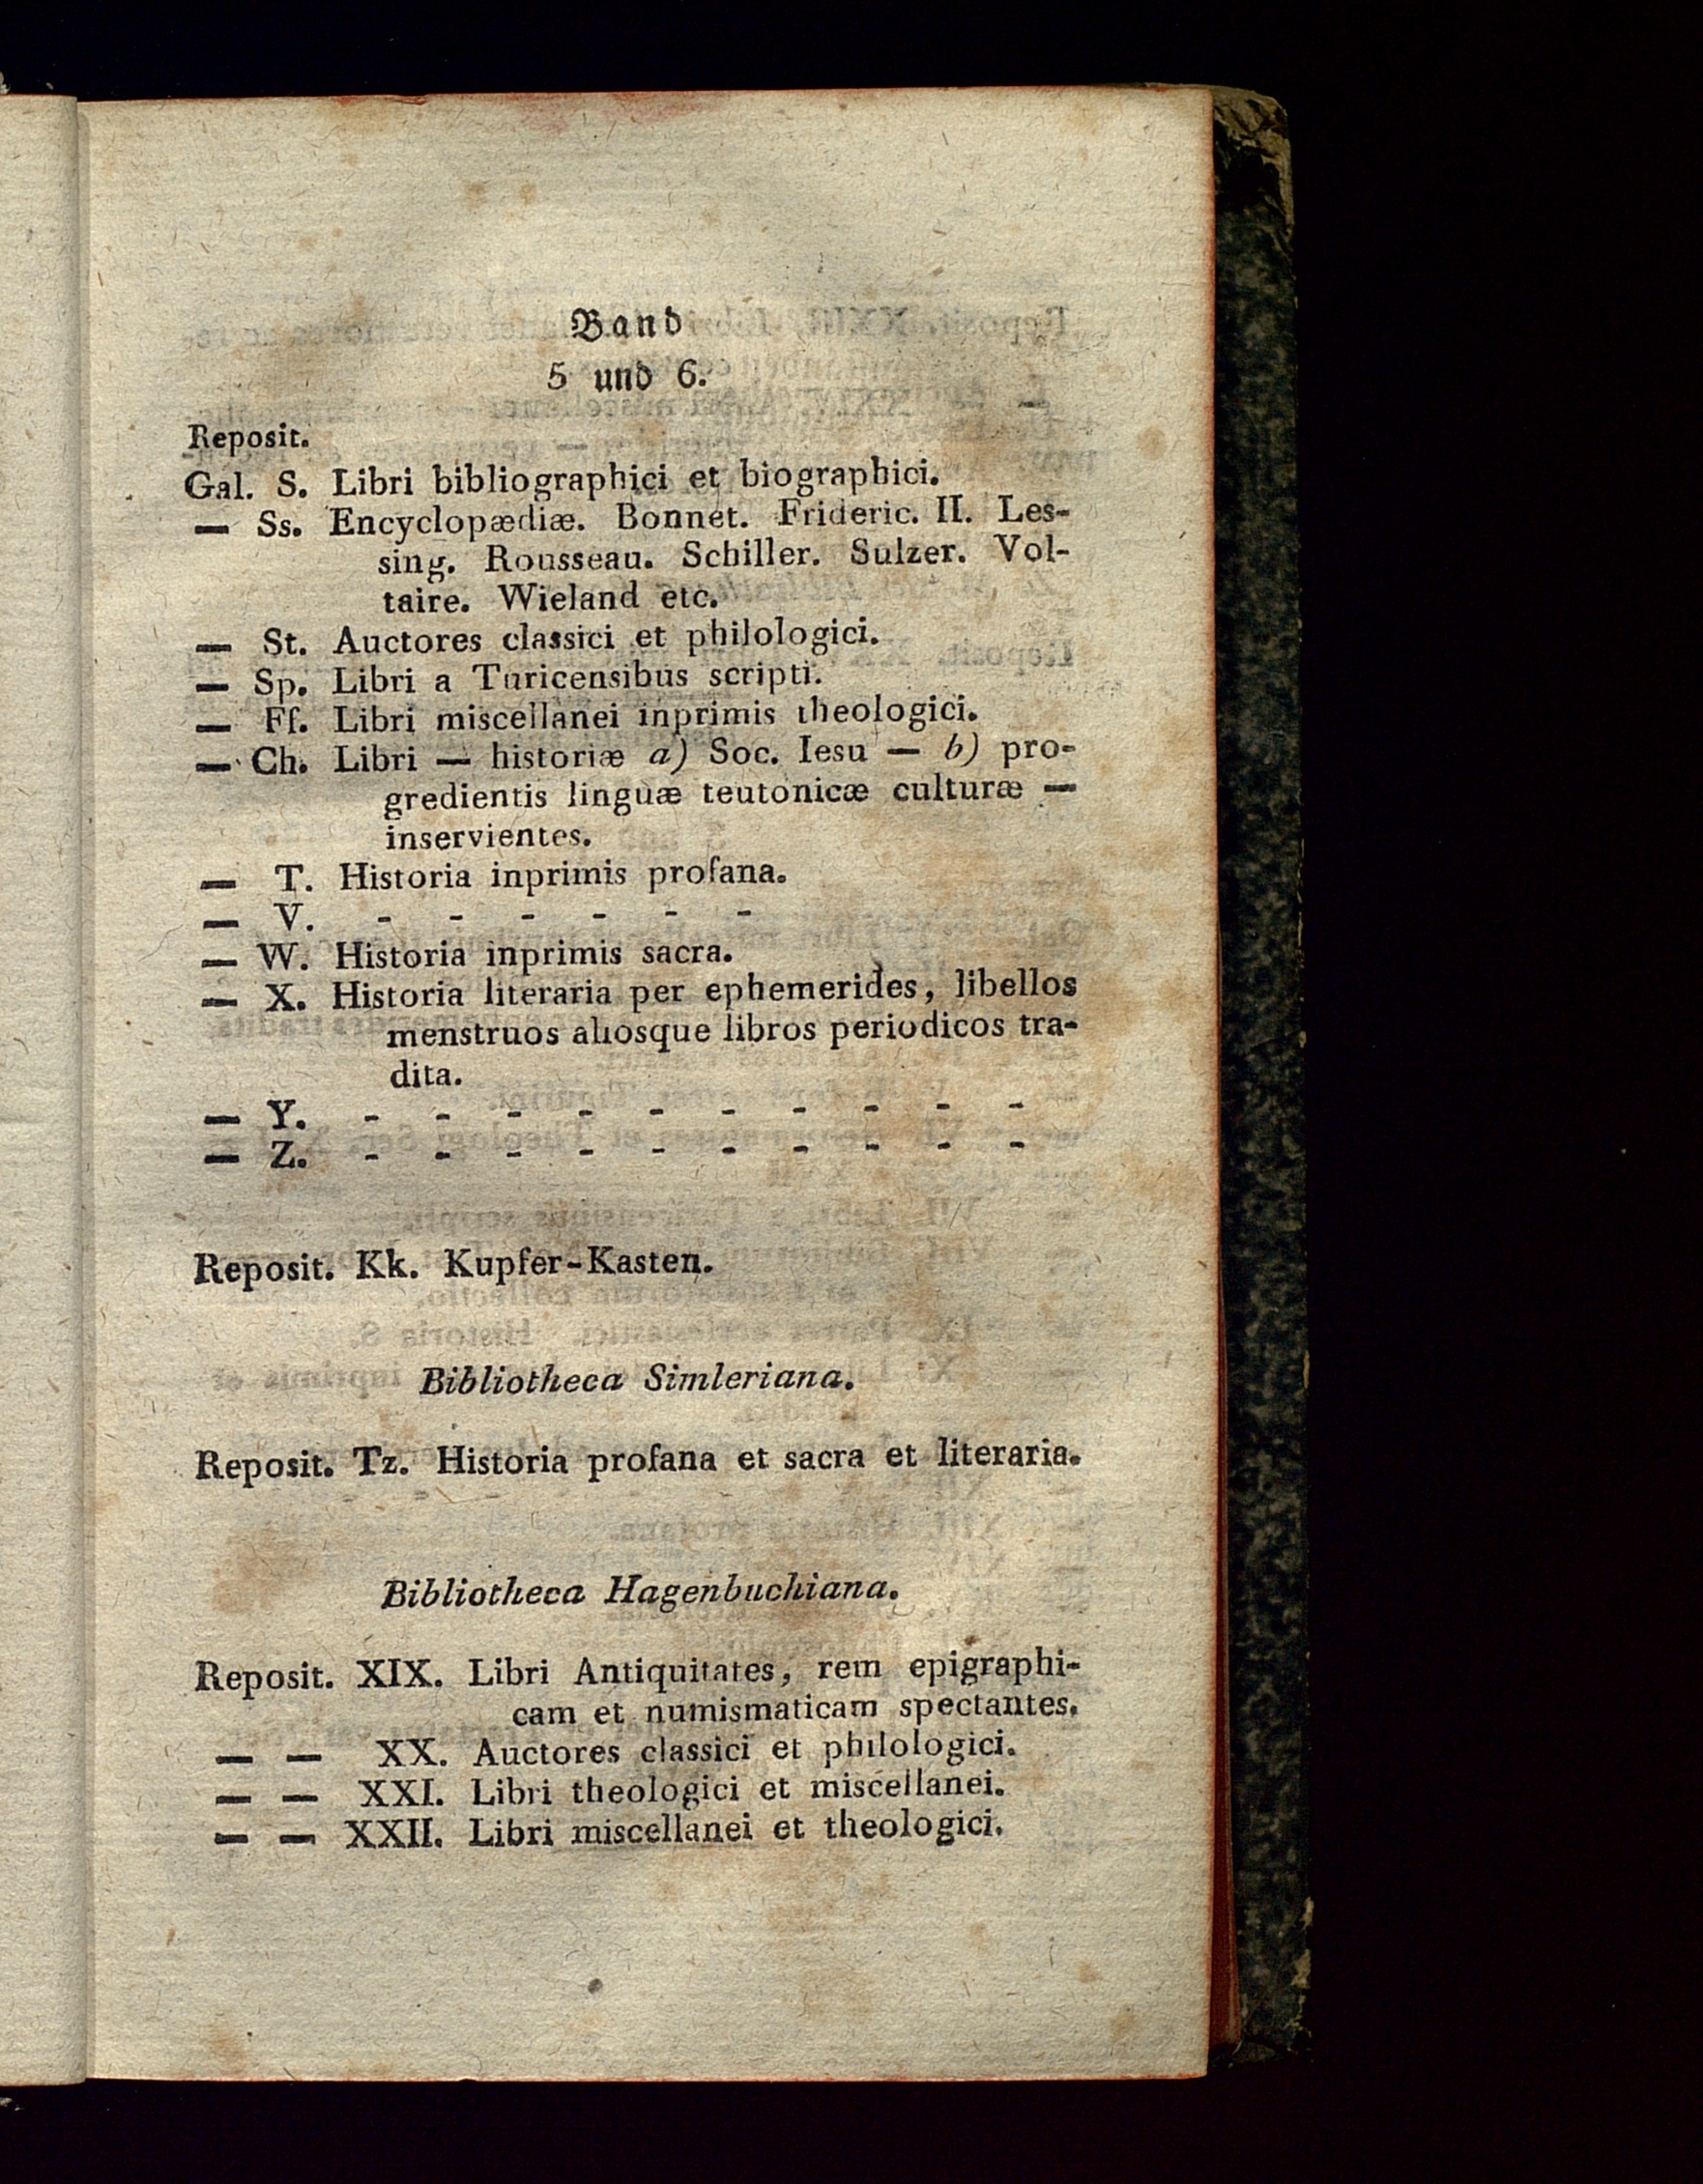 Band
5 und 6.
Reposit.
Gal. S. Libri bibliographici et biographici.
— Ss. Encyclopædiæ. Bonnet. Frideric. II. Les-
sing. Rousseau. Schiller. Sulzer. Vol-
taire. Wieland etc.
— St. Auctores classici et philologici.
— Sp. Libri a Turicensibus scripti.
— Ff. Libri miscellanei inprimis theologici.
— Ch. Libri — historiæ a) Soc. Iesu — b) pro-
gredientis linguæ teutonicæ culturæ —
inservientes.
— T. Historia inprimis profana.
— V. - - - - - -
— W. Historia inprimis sacra.
— X. Historia literaria per ephemerides, libellos
menstruos aliosque libros periodicos tra-
dita.
— Y. - - - - - - - - - -
— Z. - - - - - - - - - -
Reposit. Kk. Kupfer-Kasten.
Bibliotheca Simleriana.
Reposit. Tz. Historia profana et sacra et literaria.
Bibliotheca Hagenbuchiana.
Reposit. XIX. Libri Antiquitates, rem epigraphi-
cam et numismaticam spectantes.
— — XX. Auctores classici et philologici.
— — XXI. Libri theologici et miscellanei.
— — XXII. Libri miscellanei et theologici.